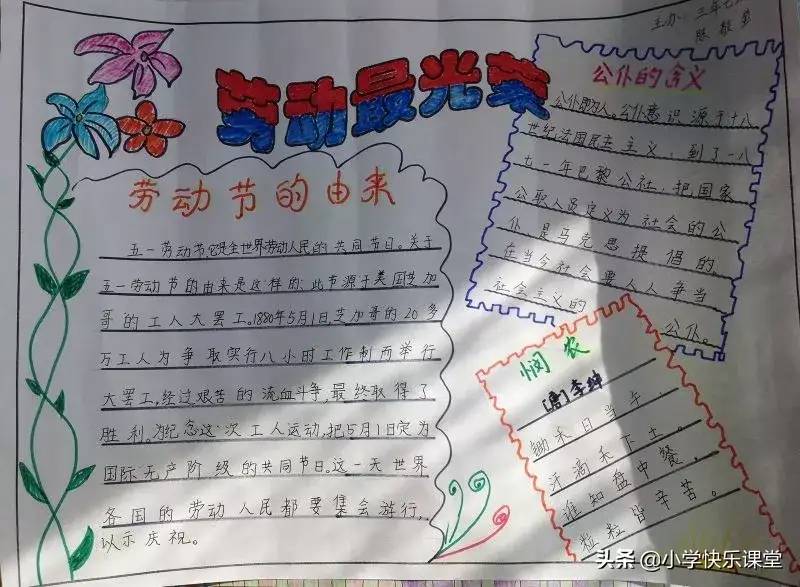 主办：三年七
陈敬
劳动最光荣
劳动节的由来
五一劳动节它是全世界劳动人民的共同节日。关于
五一劳动节的由来是这样的：此节源于美国芝加
哥的工人大罢工。1880年5月1日，芝加哥的20多
万工人为争取实行八小时工作制而举行
大罢工，经过艰苦的流血斗争，最终取得了
胜利。为纪念这次工人运动，把5月1日定为
国际无产阶级的共同节日。这一天世界
各国的劳动人民都要集会游行，
以示庆祝。
公仆的含义
公仆即为人。公仆意识源于十八
世纪法国民主主义，到了一八
七一年巴黎公社，把国家
公职人员定义为社会的公
仆是马克思提倡的
在当今社会要人人争当
社会主义的
公仆。
悯农
[唐]李绅
锄禾日当午，
汗滴禾下土。
谁知盘中餐，
粒粒皆辛苦。
头条@小学快乐课堂